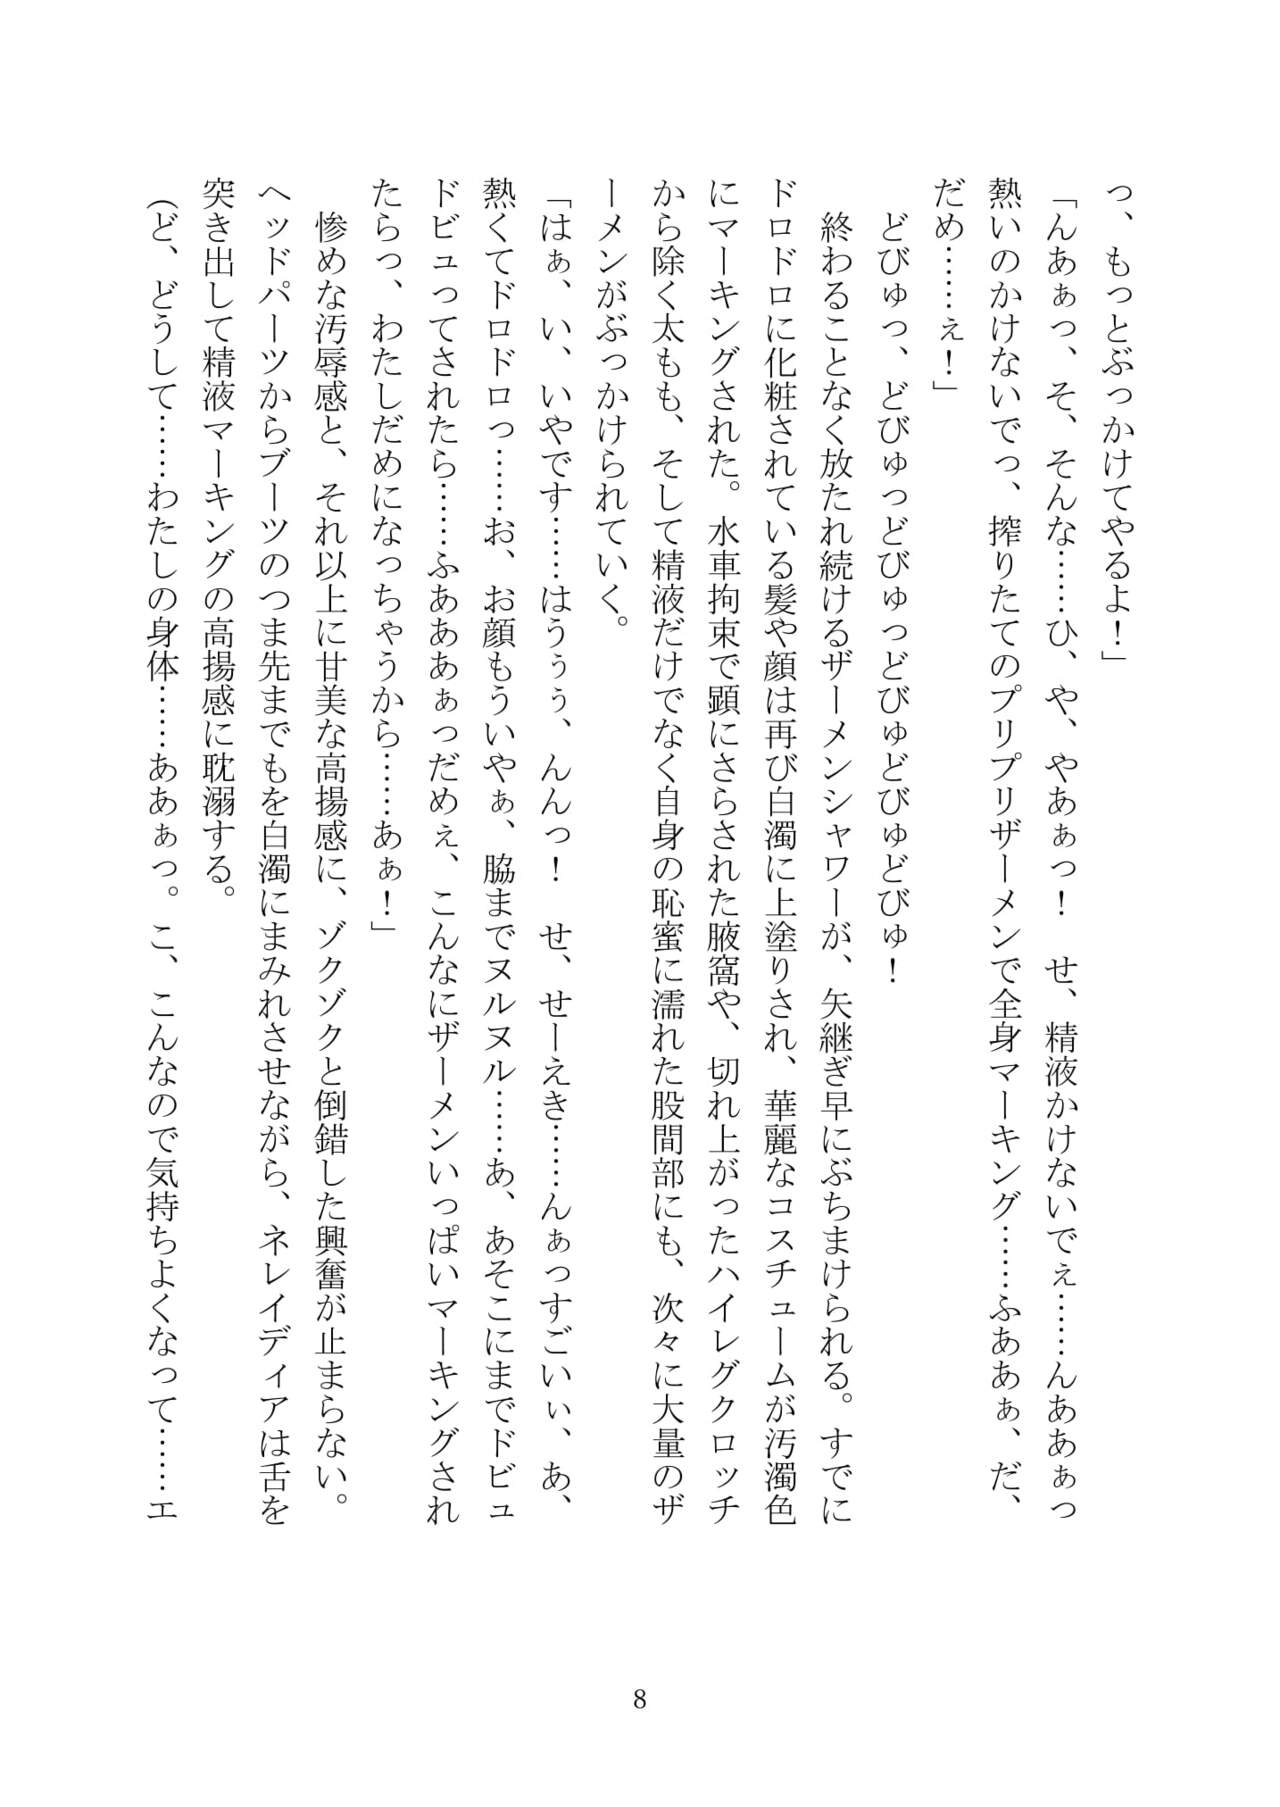 っ、もっとぶっかけてやるよ！」
「んあぁっ、そ、そんな……ひ、や、やあぁっ！　せ、精液かけないでぇ……んああぁっ
熱いのかけないでっ、搾りたてのプリプリザーメンで全身マーキング……ふああぁ、だ、
だめ……ぇ！」
　どびゅっ、どびゅっどびゅっどびゅどびゅどびゅ！
　終わることなく放たれ続けるザーメンシャワーが、矢継ぎ早にぶちまけられる。すでに
ドロドロに化粧されている髪や顔は再び白濁に上塗りされ、華麗なコスチュームが汚濁色
にマーキングされた。水車拘束で顕にさらされた腋窩や、切れ上がったハイレグクロッチ
から除く太もも、そして精液だけでなく自身の恥蜜に濡れた股間部にも、次々に大量のザ
ーメンがぶっかけられていく。
「はぁ、い、いやです……はうぅぅ、んんっ！　せ、せーえき……んぁっすごいぃ、あ、
熱くてドロドロっ……お、お顔もういやぁ、脇までヌルヌル……あ、あそこにまでドビュ
ドビュってされたら……ふあああぁっだめぇ、こんなにザーメンいっぱいマーキングされ
たらっ、わたしだめになっちゃうから……あぁ！」
　惨めな汚辱感と、それ以上に甘美な高揚感に、ゾクゾクと倒錯した興奮が止まらない。
ヘッドパーツからブーツのつま先までもを白濁にまみれさせながら、ネレイディアは舌を
突き出して精液マーキングの高揚感に耽溺する。
（ど、どうして……わたしの身体……ああぁっ。こ、こんなので気持ちよくなって……エ
8